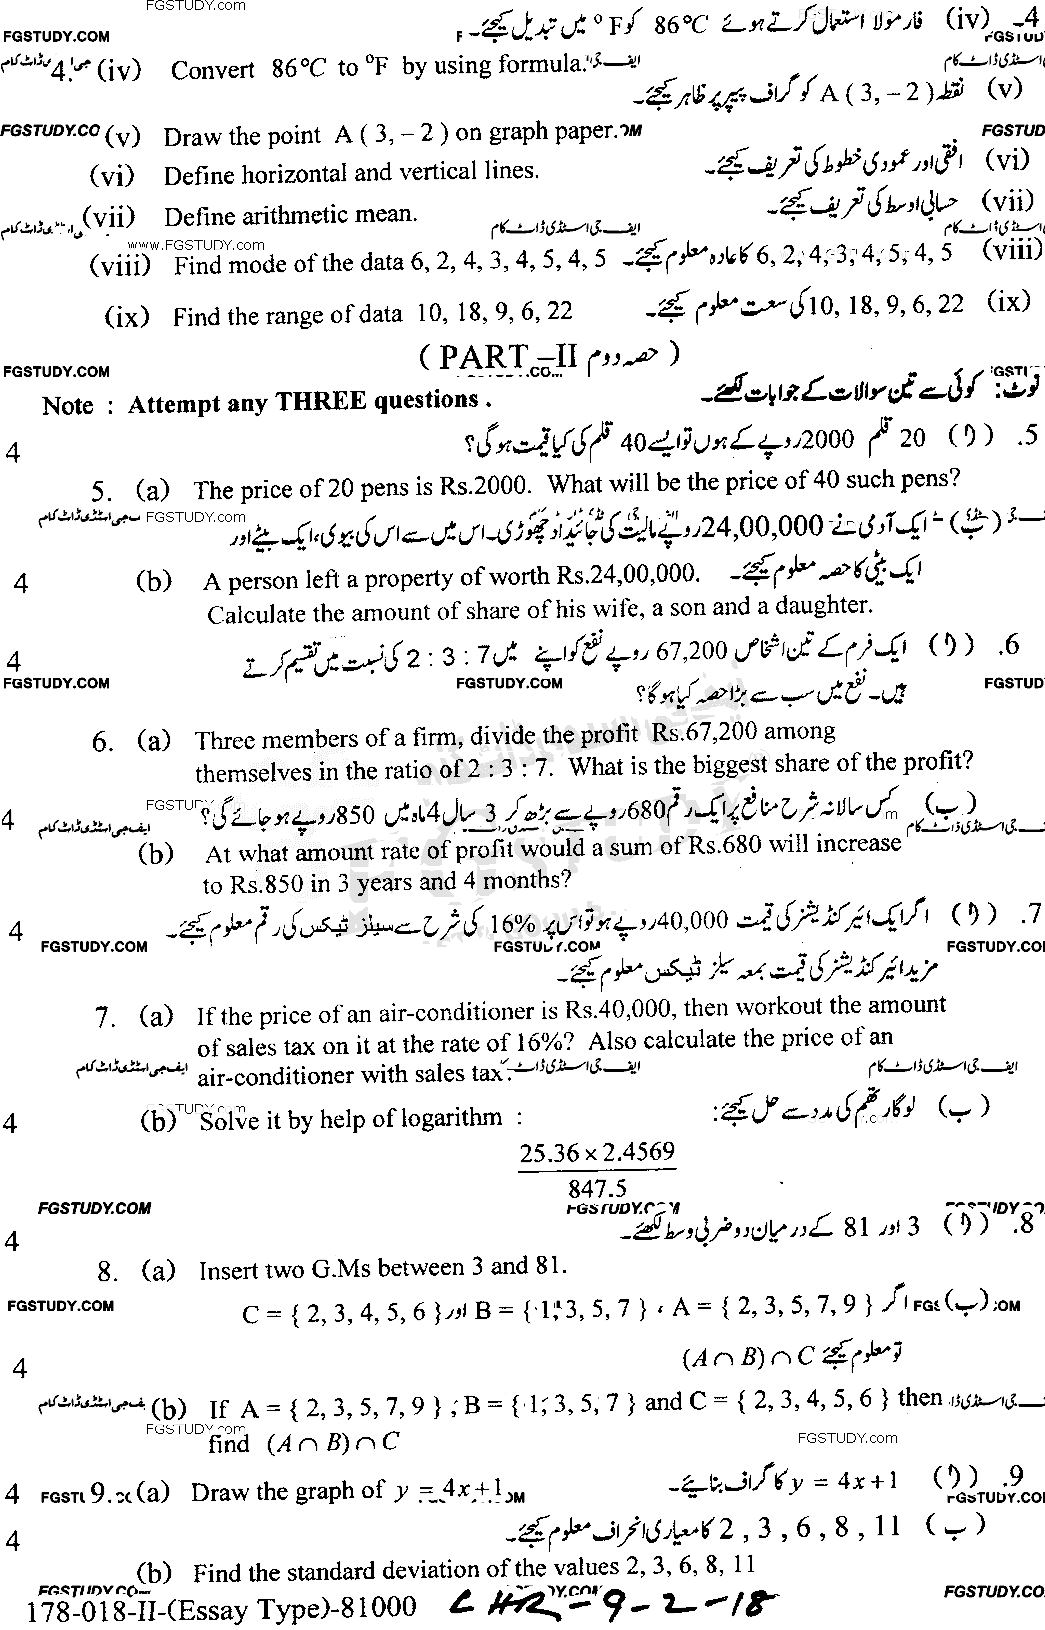 FGSTUDY.COM
4۔ (iv) فارمولا استعمال کرتے ہوئے 86°C کو °F میں تبدیل کیجئے۔
4. (iv) Convert 86°C to °F by using formula.
(v) نقطہ A ( 3, – 2 ) کو گراف پیپر پر ظاہر کیجئے۔
(v) Draw the point A ( 3, – 2 ) on graph paper.
(vi) افقی اور عمودی خطوط کی تعریف کیجئے۔
(vi) Define horizontal and vertical lines.
(vii) حسابی اوسط کی تعریف کیجئے۔
(vii) Define arithmetic mean.
www.FGSTUDY.com
(viii) 6, 2, 4, 3, 4, 5, 4, 5 کا عادہ معلوم کیجئے۔
(viii) Find mode of the data 6, 2, 4, 3, 4, 5, 4, 5
(ix) 10, 18, 9, 6, 22 کی سعت معلوم کیجئے۔
(ix) Find the range of data 10, 18, 9, 6, 22
( PART –II حصہ دوم )
FGSTUDY.COM
نوٹ: کوئی سے تین سوالات کے جوابات لکھئے۔
Note : Attempt any THREE questions .
5. (ا) 20 قلم 2000 روپے کے ہوں تو ایسے 40 قلم کی کیا قیمت ہو گی؟
4
5. (a) The price of 20 pens is Rs.2000. What will be the price of 40 such pens?
FGSTUDY.com
(ب) ایک آدمی نے 24,00,000 روپے مالیت کی جائیداد چھوڑی۔ اس میں سے اس کی بیوی، ایک بیٹے اور
ایک بیٹی کا حصہ معلوم کیجئے۔
4
(b) A person left a property of worth Rs.24,00,000.
Calculate the amount of share of his wife, a son and a daughter.
6. (ا) ایک فرم کے تین اشخاص 67,200 روپے نفع کو اپنے میں 2 : 3 : 7 کی نسبت میں تقسیم کرتے
4
FGSTUDY.COM FGSTUDY.COM FGSTUD
ہیں۔ نفع میں سب سے بڑا حصہ کیا ہو گا؟
6. (a) Three members of a firm, divide the profit Rs.67,200 among
themselves in the ratio of 2 : 3 : 7. What is the biggest share of the profit?
(ب) کس سالانہ شرح منافع پر ایک رقم 680 روپے سے بڑھ کر 3 سال 4 ماہ میں 850 روپے ہو جائے گی؟
4
(b) At what amount rate of profit would a sum of Rs.680 will increase
to Rs.850 in 3 years and 4 months?
7. (ا) اگر ایک ائیر کنڈیشنر کی قیمت 40,000 روپے ہو تو اس پر 16% کی شرح سے سیلز ٹیکس کی رقم معلوم کیجئے۔
4
FGSTUDY.COM FGSTUDY.COM FGSTUDY.COM
مزید ائیر کنڈیشنر کی قیمت بمعہ سیلز ٹیکس معلوم کیجئے۔
7. (a) If the price of an air-conditioner is Rs.40,000, then workout the amount
of sales tax on it at the rate of 16%? Also calculate the price of an
air-conditioner with sales tax.
ایف جی اسٹڈی ڈاٹ کام
(ب) لوگارتھم کی مدد سے حل کیجئے:
4
(b) Solve it by help of logarithm :
25.36 × 2.4569
847.5
FGSTUDY.COM
8. (ا) 3 اور 81 کے درمیان دو ضربی وسط لکھئے۔
4
8. (a) Insert two G.Ms between 3 and 81.
FGSTUDY.COM
(ب) اگر A = { 2, 3, 5, 7, 9 } ، B = { 1, 3, 5, 7 } اور C = { 2, 3, 4, 5, 6 }
تو معلوم کیجئے (A ∩ B) ∩ C
4
(b) If A = { 2, 3, 5, 7, 9 } , B = { 1, 3, 5, 7 } and C = { 2, 3, 4, 5, 6 } then
find (A ∩ B) ∩ C
FGSTUDY.com
9. (ا) y = 4x + 1 کا گراف بنائیے۔
4
9. (a) Draw the graph of y = 4x + 1
(ب) 2 , 3 , 6 , 8 , 11 کا معیاری انحراف معلوم کیجئے۔
4
(b) Find the standard deviation of the values 2, 3, 6, 8, 11
178-018-II-(Essay Type)-81000
9-2-18